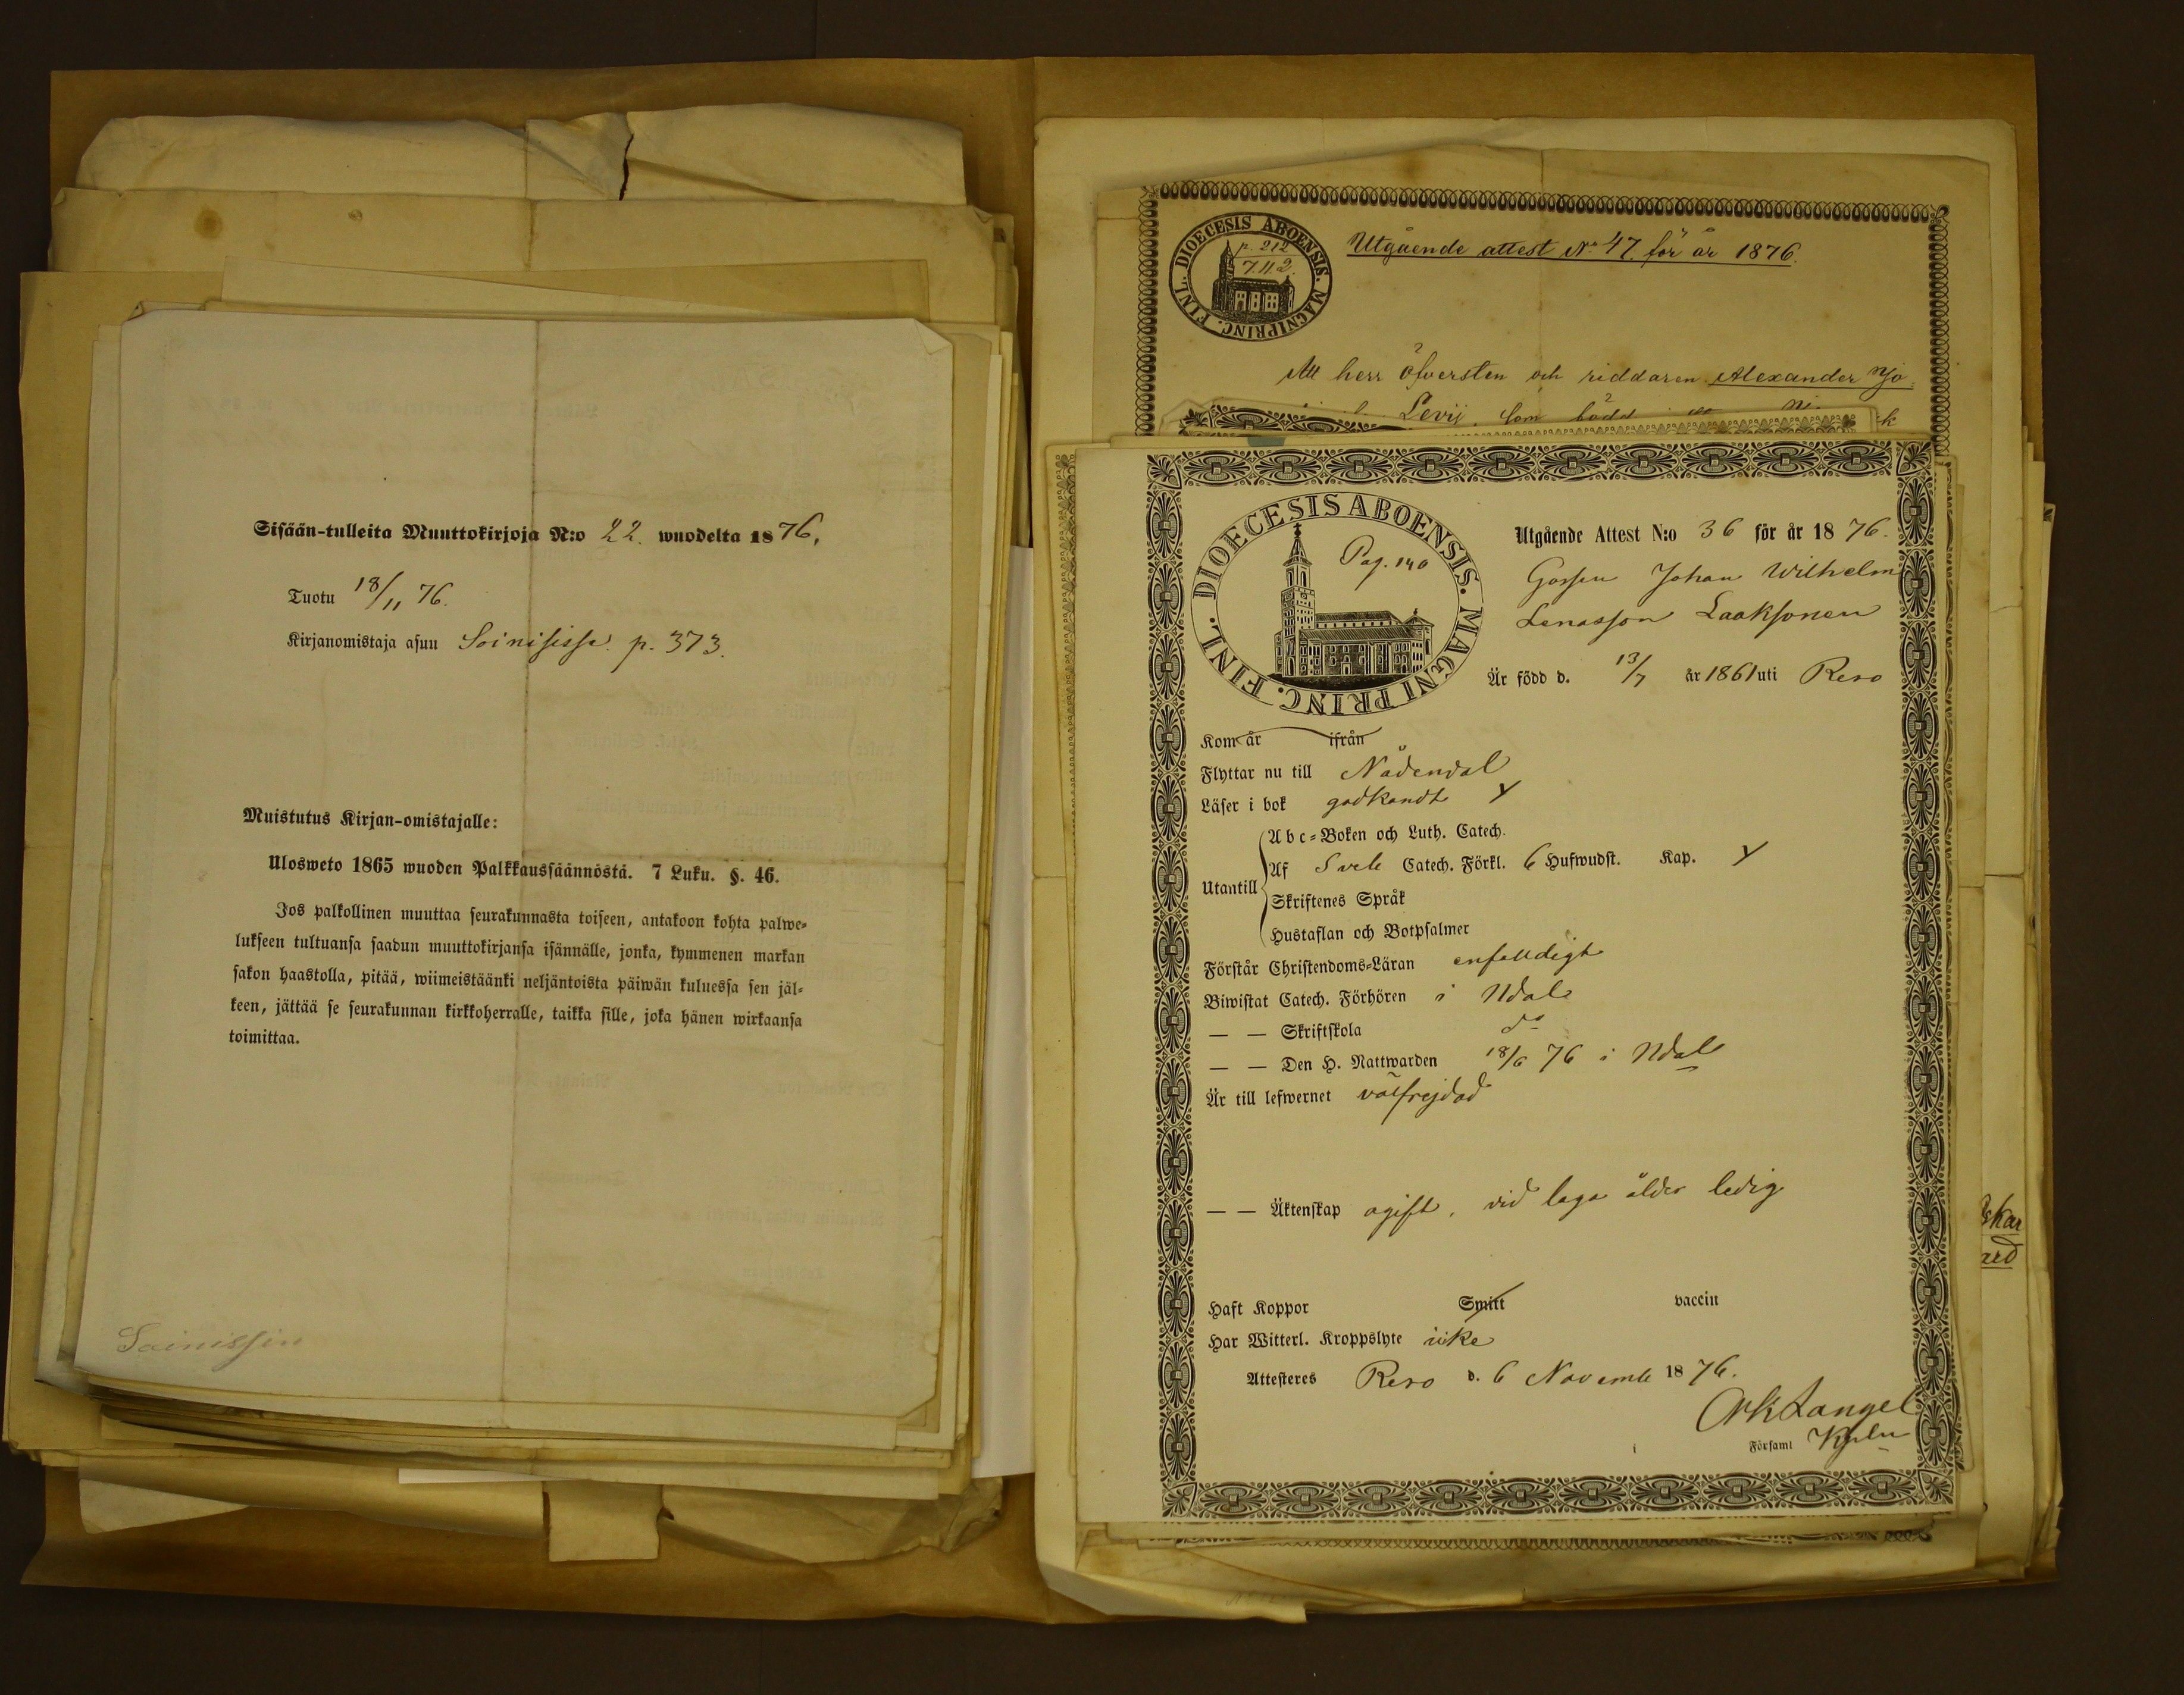 Sisään-tulleita Muuttokirjoja N:o 22. wuodelta 1876.
Tuotu 18/11 76.
Kirjanomistaja asuu Soinisissa. p. 373.
Muistutus Kirjan-omistajalle:
Ulosweto 1865 wuoden Palkkaussäännöstä. 7 Luku. §. 46.
Jos palkollinen muuttaa seurakunnasta toiseen, antakoon kohta palwe-
lukseen tultuansa saadun muuttokirjansa isännälle, jonka, kymmenen markan
sakon haastolla, pitää, wiimeistäänki neljäntoista päiwän kuluessa sen jäl-
keen, jättää se seurakunnan kirkkoherralle, taikka sille, joka hänen wirkaansa
toimittaa.
Soinissin
DIOECESIS ABOENSIS. MAGNI PRINC. FINL.
p. 212
7.11.2.
Utgående attest No 47. för år 1876.
Att herr öfversten och riddaren Alexander
Levij, som född
DIOECESIS ABOENSIS. MAGNI PRINC. FINL.
Pag. 140
Utgående Attest N:o 36 för år 1876.
Gossen Johan Wilhelm
Lenasson Laaksonen
Är född d. 13/7 år 1861 uti Reso
Kom år ifrån
Flyttar nu till Nådendal
Läser i bok godkändt
Utantill
Abc-Boken och Luth. Catech.
Af Sveb Catech. Förkl. 6 Hufwudst. Kap.
Skriftenes Språk
Hustaflan och Botpsalmer
Förstår Christendoms-Läran enfalldigt
Biwistat Catech. Förhören i Ndal
— — Skriftskola do
— — Den H. Nattwarden 18/6 76 i Ndal
Är till lefwernet välfrejdad
— — Äktenskap ogift, vid laga ålder ledig
Haft Koppor Smitt vaccin
Har Witterl. Kroppslyte icke
Attesteres Reso d. 6 Novemb 1876.
Langel
i Församl